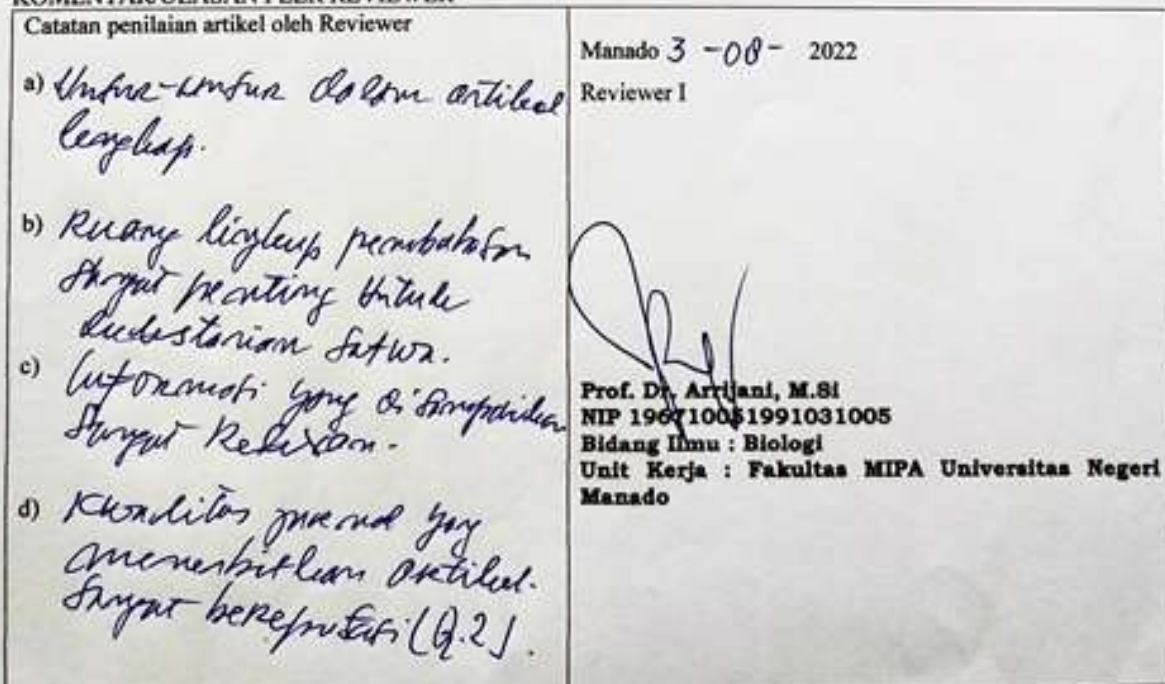 KOMENTAR/ULASAN PEER REVIEWER
Catatan penilaian artikel oleh Reviewer
a) Unsur-unsur dalam artikel
lengkap.
b) Ruang lingkup pembahasan
sangat penting untuk
satwa.
c) Informasi yang disampaikan
sangat relevan.
d) Kwalitas jurnal yang
menerbitkan artikel
sangat bereputasi (Q.2).
Manado 3 -08- 2022
Reviewer I
Prof. Dr. Arrijani, M.Si
NIP 196710051991031005
Bidang Ilmu : Biologi
Unit Kerja : Fakultas MIPA Universitas Negeri
Manado